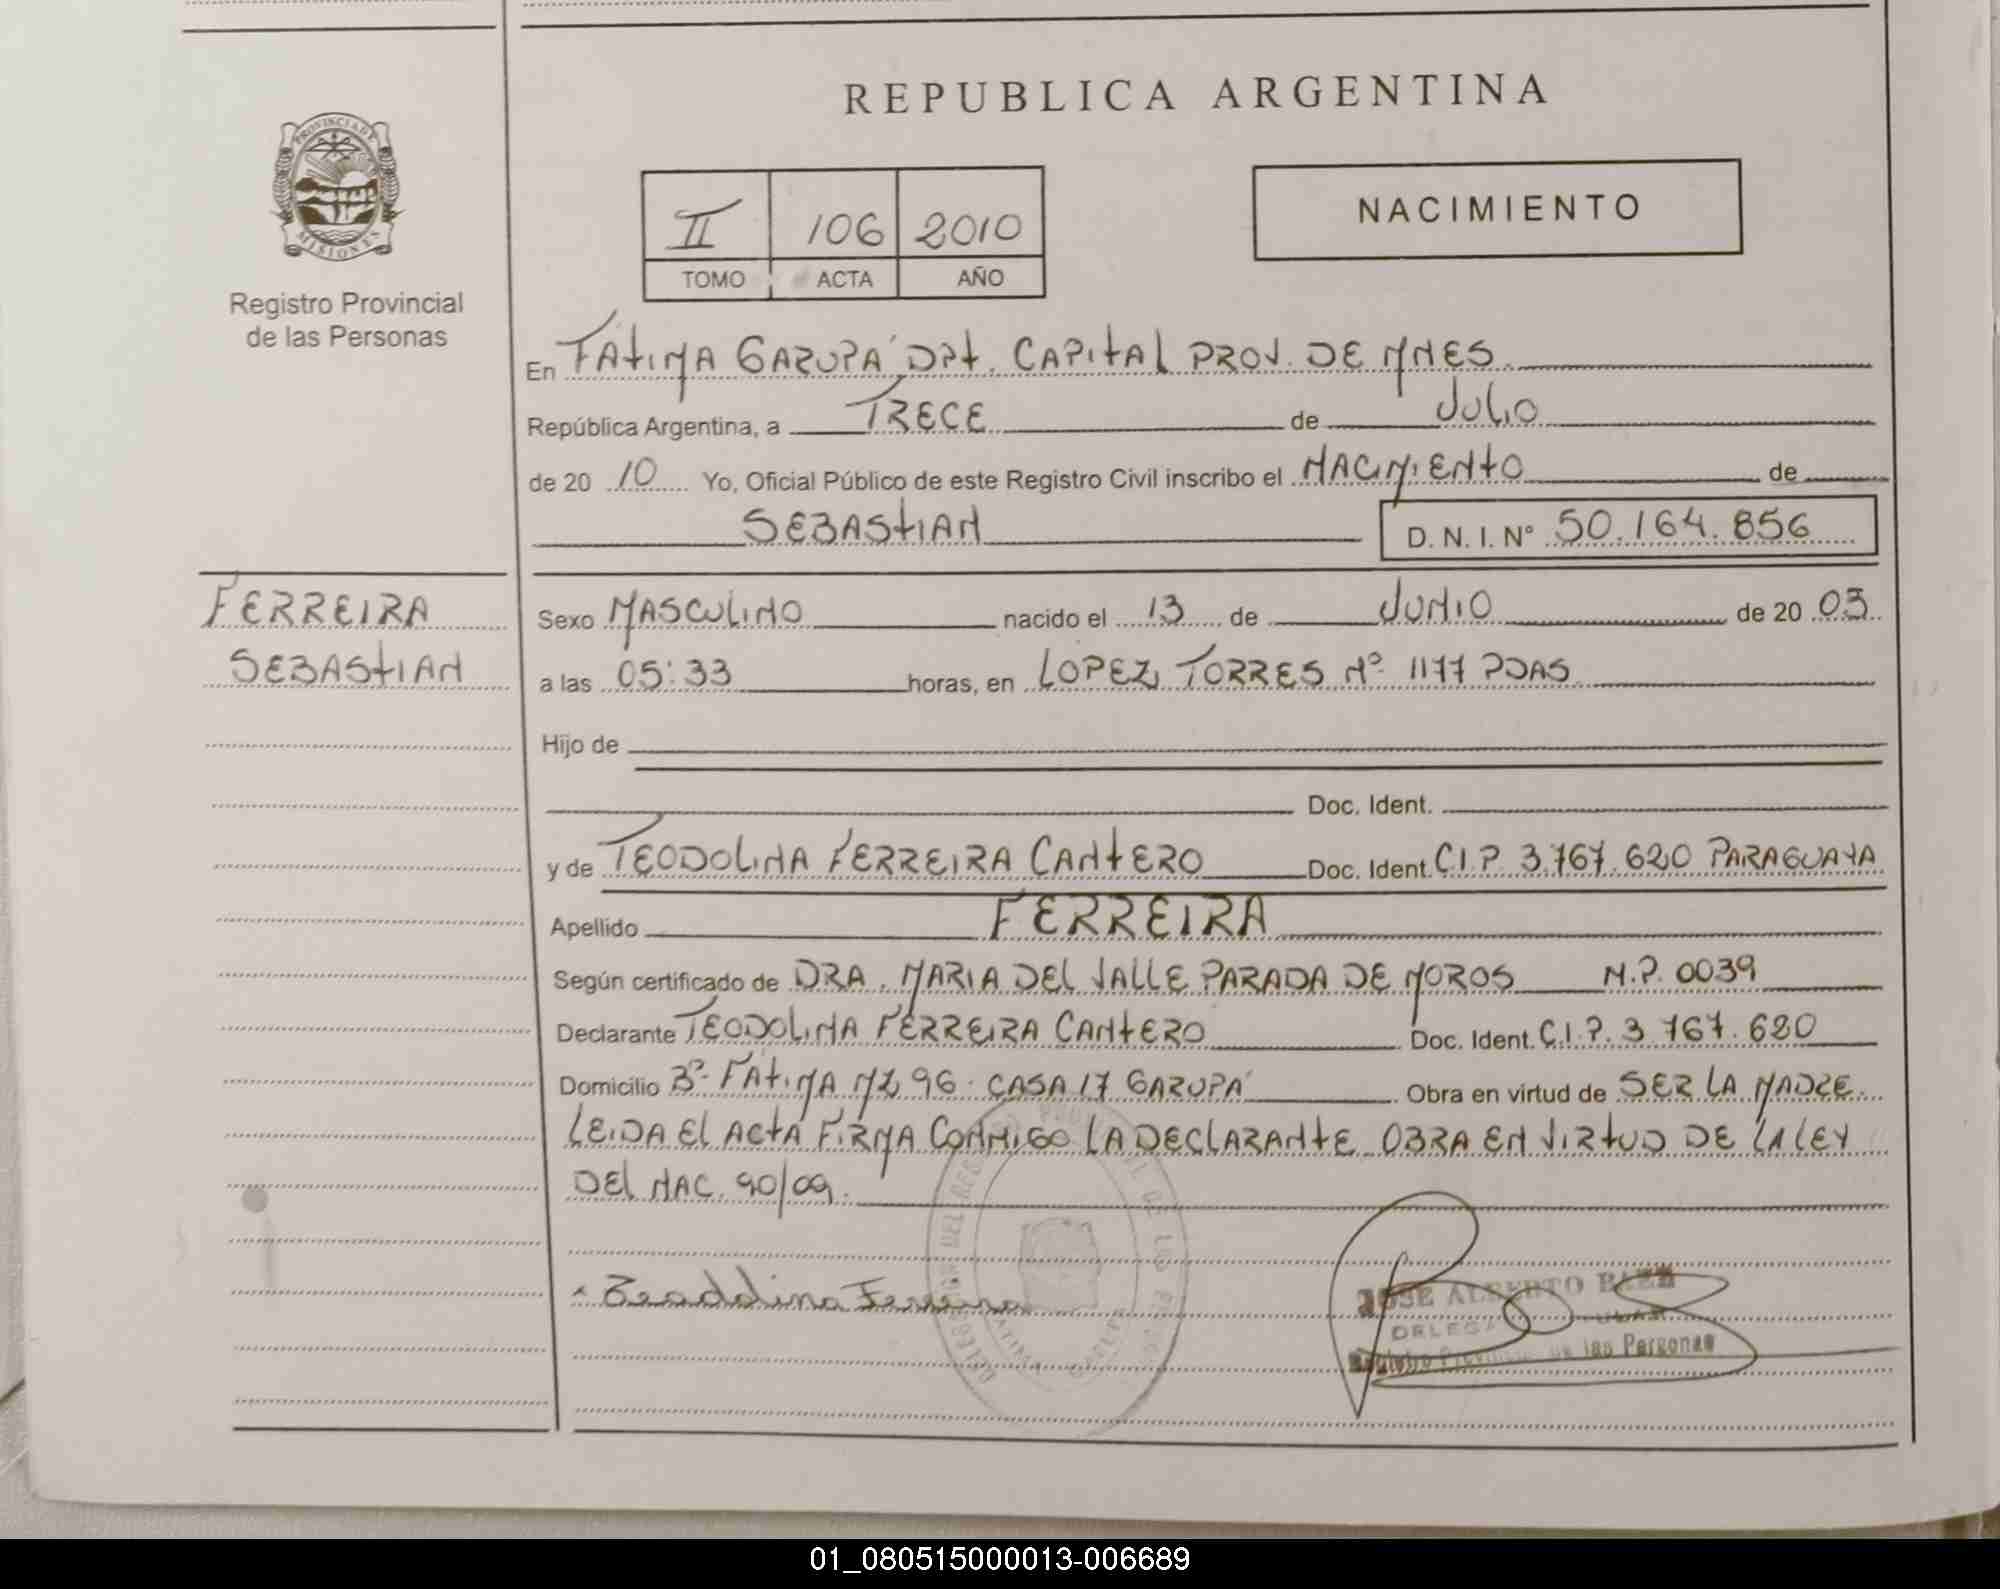 REPUBLICA ARGENTINA
PROVINCIA DE
MISIONES
Registro Provincial
de las Personas
II 106 2010
TOMO ACTA AÑO
NACIMIENTO
En FATIMA GARUPA DPt. CAPITAL PROV. DE MNES
República Argentina, a TRECE de JULIO
de 20 10 Yo, Oficial Público de este Registro Civil inscribo el NACIMIENTO de
SEBASTIAN D. N. I. Nº 50.164.856
FERREIRA
SEBASTIAN
Sexo MASCULINO nacido el 13 de JUNIO de 20 03
a las 05:33 horas, en LOPEZ TORRES Nº 1177 PDAS
Hijo de
Doc. Ident.
y de TEODOLINA FERREIRA CANTERO Doc. Ident. C.I.P. 3.767.620 PARAGUAYA
Apellido FERREIRA
Según certificado de DRA. MARIA DEL VALLE PARADA DE MOROS M.P. 0039
Declarante TEODOLINA FERREIRA CANTERO Doc. Ident. C.I.P. 3 767.620
Domicilio Bº FATIMA MZ 96 CASA 17 GARUPA Obra en virtud de SER LA MADRE.
LEIDA EL ACTA FIRMA CONMIGO LA DECLARANTE OBRA EN VIRTUD DE LA LEY
DEL NAC. 90/09.
Teoddlina Ferreira
JOSE ALBERTO BAEZ
Registro Provincial de las Personas
01_080515000013-006689